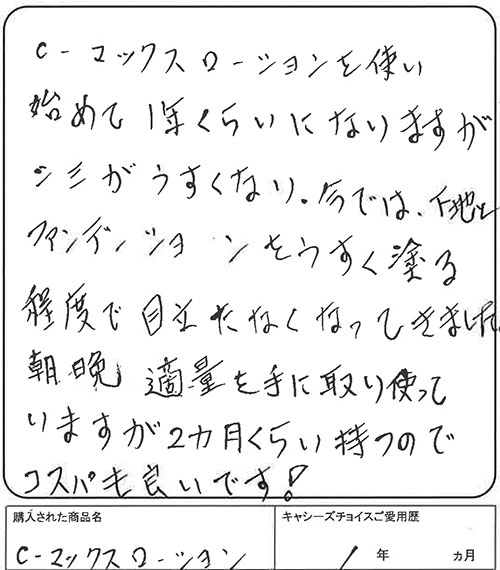 C-マックスローションを使い
始めて1年くらいになりますが
シミがうすくなり。今では、下地と
ファンデーションをうすく塗る
程度で目立たなくなってきました。
朝晩適量を手に取り使って
いますが2カ月くらい持つので
コスパも良いです!
購入された商品名 キャシーズチョイスご愛用歴
C-マックスローション 1年 ヵ月